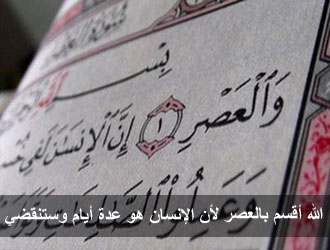 بِسْمِ
وَٱلْعَصْرِ ١ إِنَّ ٱلْإِنسَٰنَ لَفِى
ٱلصَّٰلِحَٰتِ
الله أقسم بالعصر لأن الإنسان هو عدة أيام وستنقضي